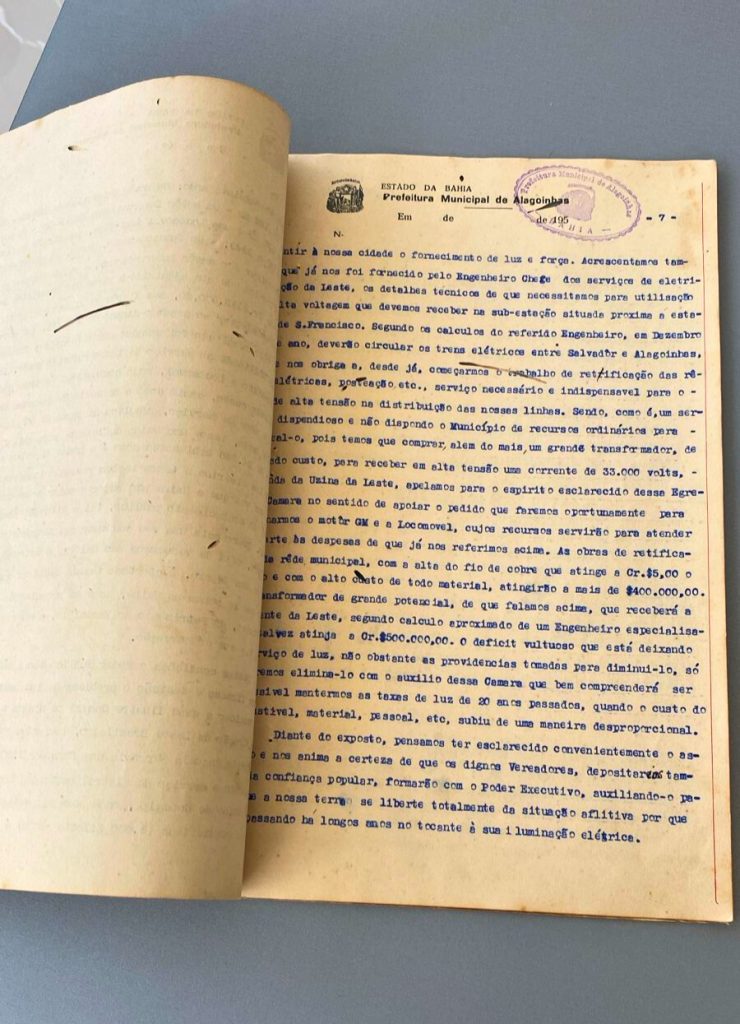 ESTADO DA BAHIA
Prefeitura Municipal de Alagoinhas
Em de de 195
Prefeitura Municipal de Alagoinhas
BAHIA
- 7 -
N-
ntir à nossa cidade o fornecimento de luz e força. Acrescentamos tam-
que já nos foi fornecido pelo Engenheiro Chefe dos serviços de eletri-
ção da Leste, os detalhes técnicos de que necessitamos para utilisação
lta voltagem que devemos receber na sub-estação situada proxima a esta-
de S.Francisco. Segundo os calculos do referido Engenheiro, em Dezembro
e ano, deverão circular os trens elétricos entre Salvador e Alagoinhas,
e nos obriga a, desde já, começarmos o trabalho de retificação das rê-
létricas, posteação etc., serviço necessário e indispensavel para o -
de alta tensão na distribuição das nossas linhas. Sendo, como é,um ser-
dispendioso e não dispondo o Município de recursos ordinários para -
al-o, pois temos que comprar, alem do mais, um grande transformador, de
do custo, para receber em alta tensão uma corrente de 33.000 volts, -
da da Uzina da Leste, apelamos para o espirito esclarecido dessa Egre-
Camara no sentido de apoiar o pedido que faremos oportunamente para
armos o motôr GM e a Locomovel, cujos recursos servirão para atender
rte às despesas de que já nos referimos acima. As obras de retifica-
a rêde municipal, com a alta do fio de cobre que atinge a Cr.$5,00 o
o e com o alto custo de todo material, atingirão a mais de $400.000,00.
nsformador de grande potencial, de que falamos acima, que receberá a
nte da Leste, segundo calculo aproximado de um Engenheiro especialisa-
alvez atinja a Cr.$500.000,00. O deficit vultuoso que está deixando
rviço de luz, não obstante as providencias tomadas para diminui-lo, só
remos elimina-lo com o auxilio dessa Camara que bem compreenderá ser
ssivel mantermos as taxas de luz de 20 anos passados, quando o custo do
ustivel, material, pessoal, etc, subiu de uma maneira desproporcional.
Diante do exposto, pensamos ter esclarecido convenientemente o as-
o e nos anima a certeza de que os dignos Vereadores, depositarios tam-
a confiança popular, formarão com o Poder Executivo, auxiliando-o pa-
e a nossa terra se liberte totalmente da situação aflitiva por que
passando ha longos anos no tocante à sua iluminação elétrica.